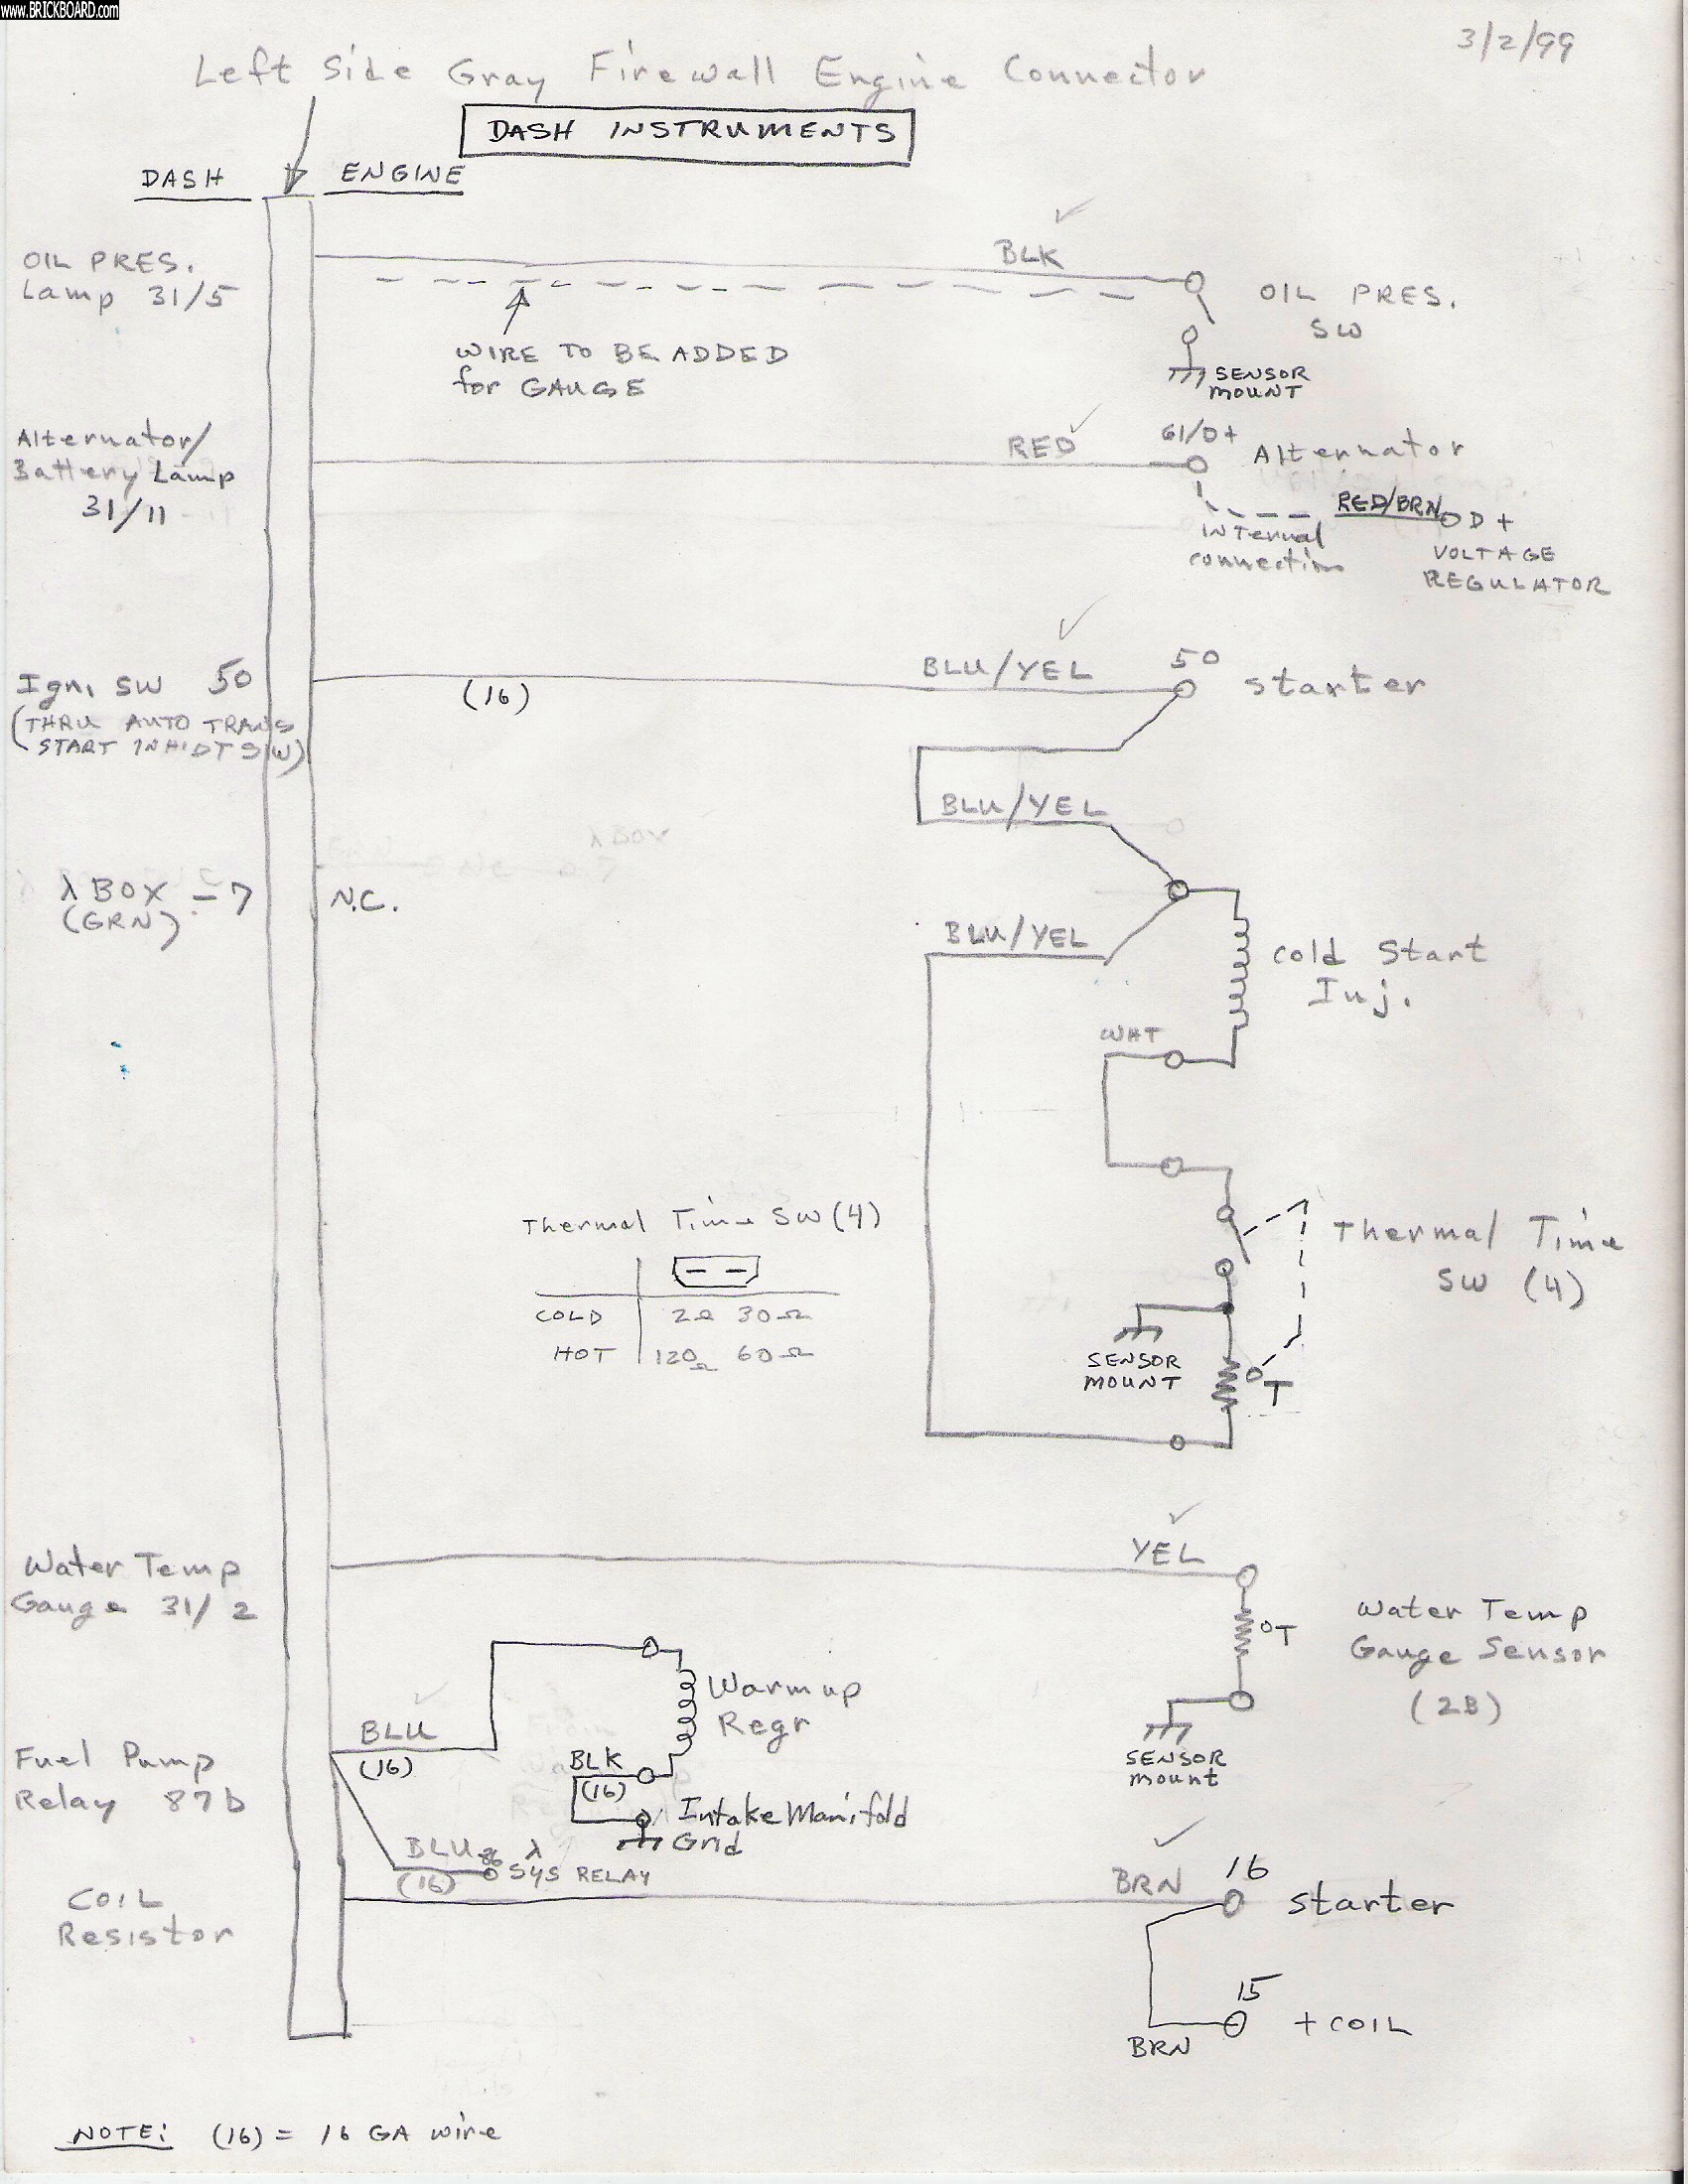 www.BRICKBOARD.com
3/2/99
Left Side Gray Firewall Engine Connector
DASH INSTRUMENTS
DASH
ENGINE
OIL PRES.
Lamp 31/5
BLK
OIL PRES.
SW
SENSOR
MOUNT
WIRE TO BE ADDED
for GAUGE
Alternator/
Battery Lamp
31/11
RED
61/D+
Alternator
RED/BRN
D+
INternal
connection
VOLTAGE
REGULATOR
Ign. SW 50
(THRU AUTO TRANS
START INHIDT SW)
(16)
BLU/YEL
50
Starter
BLU/YEL
λ BOX - 7
(GRN)
N.C.
BLU/YEL
Cold Start
Inj.
WHT
Thermal Time SW (4)
COLD 2Ω 30Ω
HOT 120Ω 60Ω
Thermal Time
SW (4)
SENSOR
MOUNT
°T
Water Temp
Gauge 31/2
YEL
°T
Water Temp
Gauge Sensor
(2B)
SENSOR
mount
Fuel Pump
Relay 87b
BLU
(16)
Warmup
Regr
BLK
(16)
Intake Manifold
Grnd
BLU 86 λ
(16) SYS RELAY
COIL
Resistor
BRN
16
Starter
15
+ COIL
BRN
NOTE: (16) = 16 GA wire